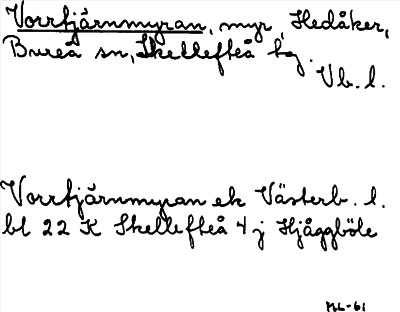 Vorrtjärnmyran, myr, Hedåker,
Bureå sn, Skellefteå tg.
Vb. l.
Vorrtjärnmyran ek Västerb. l.
bl 22 K Skellefteå 4 j Hjåggböle
ML-61